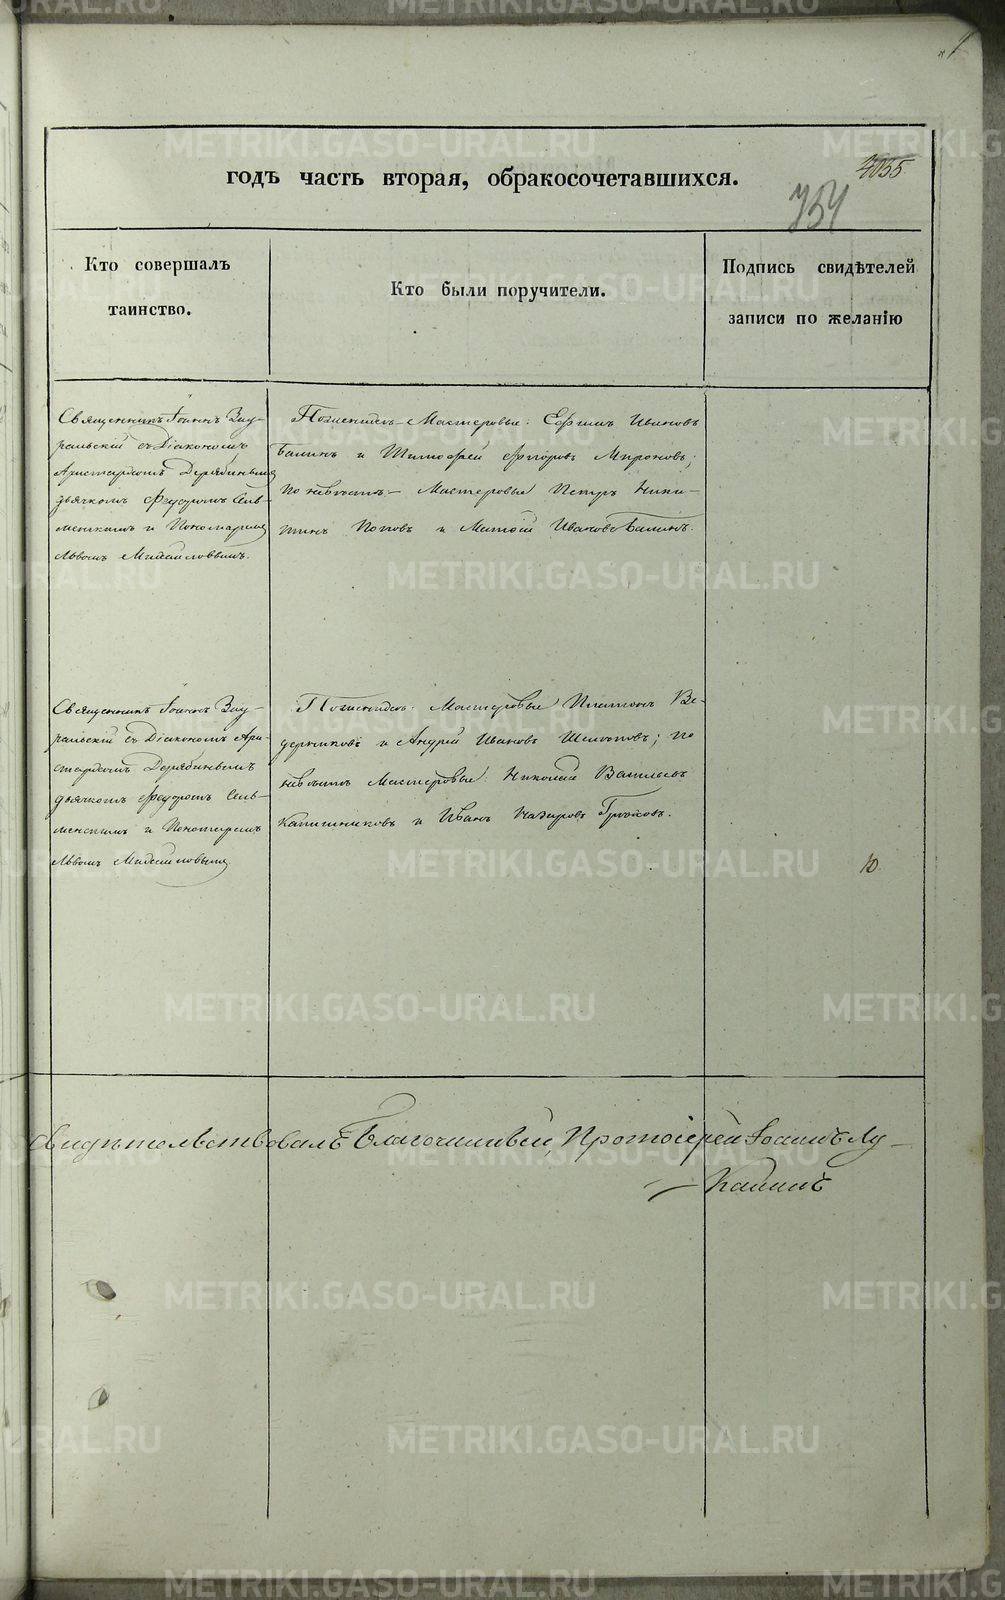 4055
годъ часть вторая, обракосочетавшихся.
754
Кто совершалъ
таинство.
Кто были поручители.
Подпись свидѣтелей
записи по желанію
Священникъ Іоаннъ Зау-
ральскій съ Діакономъ
Аристархомъ Дерябинымъ
дьячкомъ Федоромъ Сель-
менскимъ и Пономаремъ
Львомъ Михайловымъ.
По женихѣ Мастеровые: Ефимъ Ивановъ
Балинъ и Тимофей Мироновъ;
по невѣстѣ – Мастеровые Петръ Ники-
тинъ Поповъ и Ивановъ Балинъ.
Священникъ Іоаннъ Зау-
ральскій съ Діакономъ Ари-
стархомъ Дерябинымъ
дьячкомъ Федоромъ Сель-
менскимъ и Пономаремъ
Львомъ Михайловымъ
По женихѣ: Мастеровые Платонъ Ве-
дерниковъ и Андрей Ивановъ; по
невѣстѣ Мастеровые: Николай Васильевъ
Калашниковъ и Иванъ
10.
свидѣтельствовалъ Благочинный, Протоіерей Іоаннъ Лу-
канинъ
METRIKI.GASO-URAL.RU